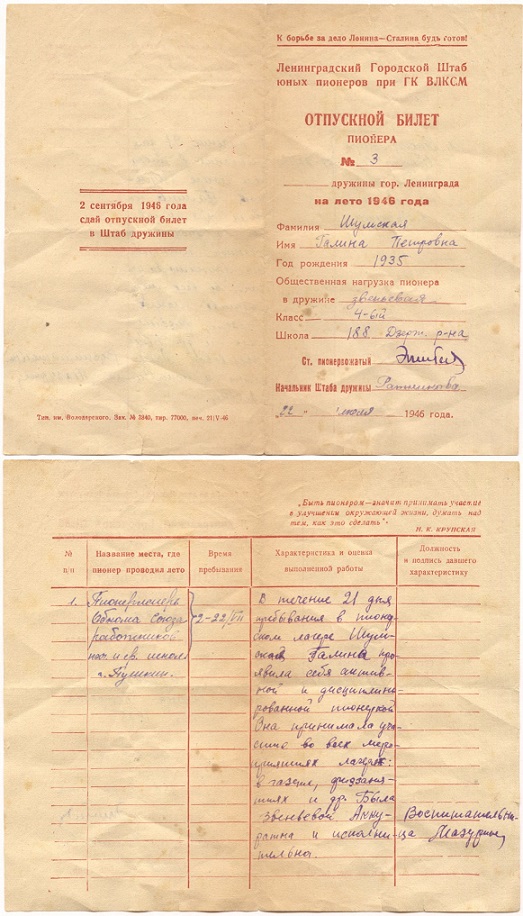 К борьбе за дело Ленина—Сталина будь готов!
Ленинградский Городской Штаб
юных пионеров при ГК ВЛКСМ
ОТПУСКНОЙ БИЛЕТ
ПИОНЕРА
№ 3
дружины гор. Ленинграда
на лето 1946 года
Фамилия Шумская
Имя Галина Петровна
Год рождения 1935
Общественная нагрузка пионера
в дружине звеньевая
Класс 4-ый
Школа 188 Дзерж. р-на
Ст. пионервожатый
Начальник Штаба дружины
22 " июля 1946 года.
2 сентября 1946 года
сдай отпускной билет
в Штаб дружины
Тип. им. Володарского. Зак. № 3840, тир. 77000, печ. 21|V-46
„Быть пионером—значит принимать участие
в улучшении окружающей жизни, думать над
тем, как это сделать".
Н. К. КРУПСКАЯ
№ п/п
Название места, где пионер проводил лето
Время пребывания
Характеристика и оценка выполненной работы
Должность и подпись давшего характеристику
1. Пионерлагерь
Обкома Союза
работников
нач. и ср. школ
г. Пушкин.
2-22/VII
В течение 21 дня
пребывания в пионер
ском лагере Шум-
ская Галина про
явила себя актив-
ной и дисциплини-
рованной пионеркой
Она принимала уча-
стие во всех меро
приятиях лагеря:
в газете, физзаня-
тиях и др. Была
звеньевой. Акку-
ратна и исполни-
тельна.
Воспитательни-
ца